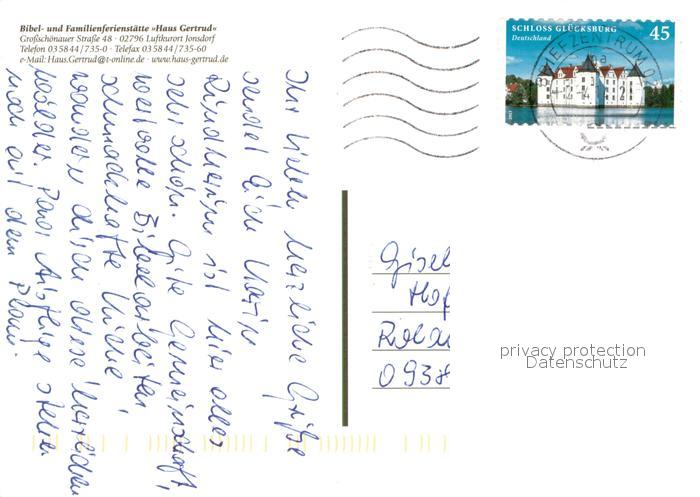 Bibel- und Familienferienstätte »Haus Gertrud«
Großschönauer Straße 48 · 02796 Luftkurort Jonsdorf
Telefon 035844/735-0 · Telefax 035844/735-60
e-Mail: Haus.Gertrud@t-online.de · www.haus-gertrud.de
SCHLOSS GLÜCKSBURG 45
Deutschland
2013
BRIEFZENTRUM 0
Ihr Lieben herzliche Grüße
sendet Euch
ist hier alles
sehr schön. Gute Gemeinschaft,
wertvolle Bibelarbeiten
schmackhafte Küche,
wandern durch diese herrlichen
Wälder. Paar Ausflüge stehen
noch auf dem Plan.
Gisel
Hof
0938
privacy protection
Datenschutz